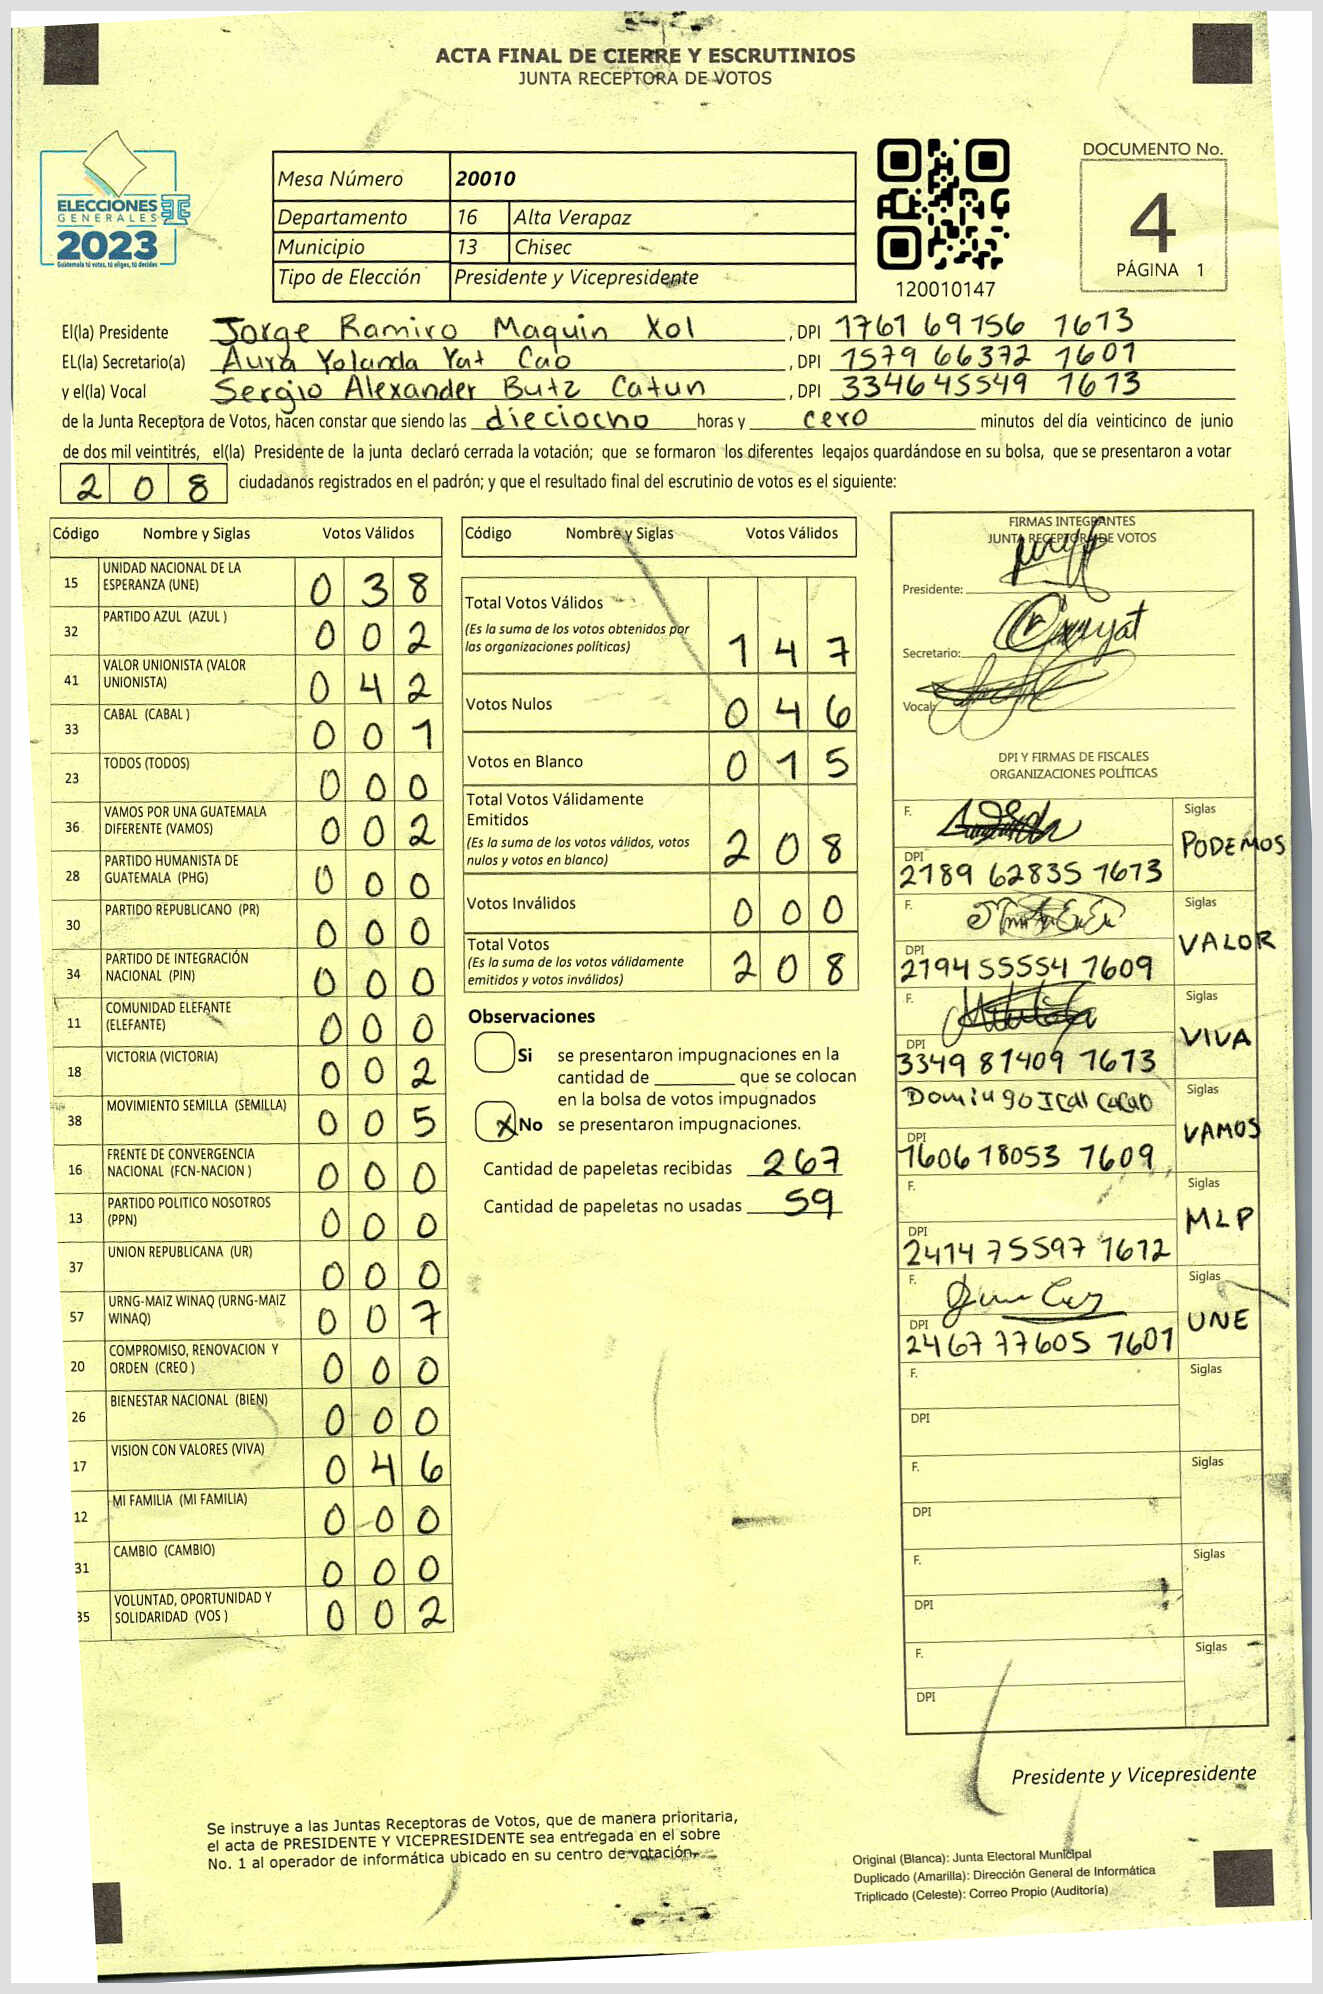 ACTA FINAL DE CIERRE Y ESCRUTINIOS
JUNTA RECEPTORA DE VOTOS
ELECCIONES
GENERALES
2023
Guatemala tú votas, tú eliges, tú decides
Mesa Número 20010
Departamento 16 Alta Verapaz
Municipio 13 Chisec
Tipo de Elección Presidente y Vicepresidente
120010147
DOCUMENTO No.
4
PÁGINA 1
El(la) Presidente Jorge Ramiro Maquin Xol , DPI 1761 69156 1613
EL(la) Secretario(a) Aura Yolanda Yat Cao , DPI 1579 66372 1601
y el(la) Vocal Sergio Alexander Butz Catun , DPI 3346 45549 1613
de la Junta Receptora de Votos, hacen constar que siendo las dieciocho horas y cero minutos del día veinticinco de junio
de dos mil veintitrés, el(la) Presidente de la junta declaró cerrada la votación; que se formaron los diferentes legajos guardándose en su bolsa, que se presentaron a votar
208 ciudadanos registrados en el padrón; y que el resultado final del escrutinio de votos es el siguiente:
Código Nombre y Siglas Votos Válidos
15 UNIDAD NACIONAL DE LA ESPERANZA (UNE) 038
32 PARTIDO AZUL (AZUL ) 002
41 VALOR UNIONISTA (VALOR UNIONISTA) 042
33 CABAL (CABAL ) 001
23 TODOS (TODOS) 000
36 VAMOS POR UNA GUATEMALA DIFERENTE (VAMOS) 002
28 PARTIDO HUMANISTA DE GUATEMALA (PHG) 000
30 PARTIDO REPUBLICANO (PR) 000
34 PARTIDO DE INTEGRACIÓN NACIONAL (PIN) 000
11 COMUNIDAD ELEFANTE (ELEFANTE) 000
18 VICTORIA (VICTORIA) 002
38 MOVIMIENTO SEMILLA (SEMILLA) 005
16 FRENTE DE CONVERGENCIA NACIONAL (FCN-NACION ) 000
13 PARTIDO POLITICO NOSOTROS (PPN) 000
37 UNION REPUBLICANA (UR) 000
57 URNG-MAIZ WINAQ (URNG-MAIZ WINAQ) 007
20 COMPROMISO, RENOVACION Y ORDEN (CREO ) 000
26 BIENESTAR NACIONAL (BIEN) 000
17 VISION CON VALORES (VIVA) 046
12 MI FAMILIA (MI FAMILIA) 000
31 CAMBIO (CAMBIO) 000
35 VOLUNTAD, OPORTUNIDAD Y SOLIDARIDAD (VOS ) 002
Código Nombre y Siglas Votos Válidos
Total Votos Válidos
(Es la suma de los votos obtenidos por
las organizaciones políticas) 147
Votos Nulos 046
Votos en Blanco 015
Total Votos Válidamente
Emitidos
(Es la suma de los votos válidos, votos
nulos y votos en blanco) 208
Votos Inválidos 000
Total Votos
(Es la suma de los votos válidamente
emitidos y votos inválidos) 208
Observaciones
Si se presentaron impugnaciones en la
cantidad de ________ que se colocan
en la bolsa de votos impugnados
X No se presentaron impugnaciones.
Cantidad de papeletas recibidas 267
Cantidad de papeletas no usadas 59
FIRMAS INTEGRANTES
JUNTA RECEPTORA DE VOTOS
Presidente:
Secretario:
Vocal:
DPI Y FIRMAS DE FISCALES
ORGANIZACIONES POLÍTICAS
F. Siglas
PODEMOS
DPI
2189 62835 1613
F. Siglas
VALOR
DPI
2194 55554 1609
F. Siglas
VIVA
DPI
3349 81409 1613
Domingo Ical Siglas
VAMOS
DPI
1606 18053 1609
F. Siglas
MLP
DPI
2414 75597 1612
F. Siglas
UNE
DPI
2467 77605 1601
F. Siglas
DPI
F. Siglas
DPI
F. Siglas
DPI
F. Siglas
DPI
Presidente y Vicepresidente
Se instruye a las Juntas Receptoras de Votos, que de manera prioritaria,
el acta de PRESIDENTE Y VICEPRESIDENTE sea entregada en el sobre
No. 1 al operador de informática ubicado en su centro de votación.
Original (Blanca): Junta Electoral Municipal
Duplicado (Amarilla): Dirección General de Informática
Triplicado (Celeste): Correo Propio (Auditoría)